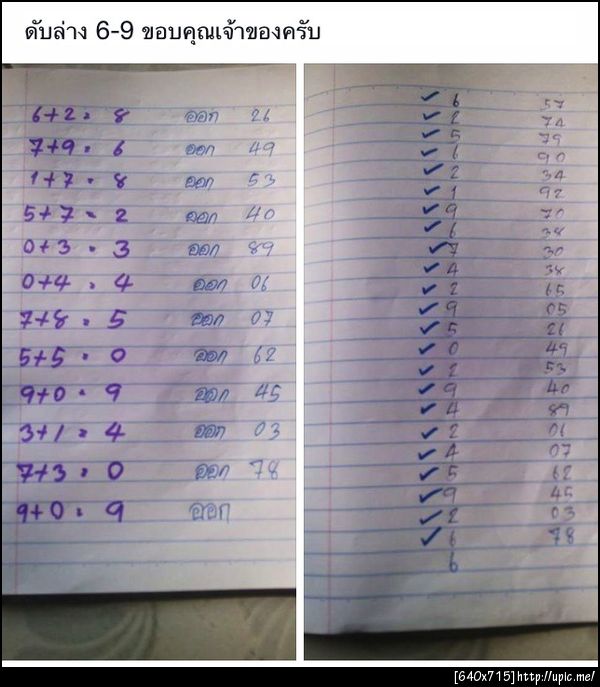 ดับล่าง 6-9 ขอบคุณเจ้าของครับ
6+2= 8 ออก 26
7+9= 6 ออก 49
1+7= 8 ออก 53
5+7= 2 ออก 40
0+3= 3 ออก 89
0+4= 4 ออก 06
7+8= 5 ออก 07
5+5= 0 ออก 62
9+0= 9 ออก 45
3+1= 4 ออก 03
7+3= 0 ออก 78
9+0= 9 ออก
✓ 6 57
✓ 2 74
✓ 5 79
✓ 6 90
✓ 2 34
✓ 1 92
✓ 9 70
✓ 6 38
✓ 7 30
✓ 4 38
✓ 2 65
✓ 9 05
✓ 5 26
✓ 0 49
✓ 2 53
✓ 9 40
✓ 4 89
✓ 2 06
✓ 4 07
✓ 5 62
✓ 9 45
✓ 2 03
✓ 6 78
6
[640x715]http://upic.me/